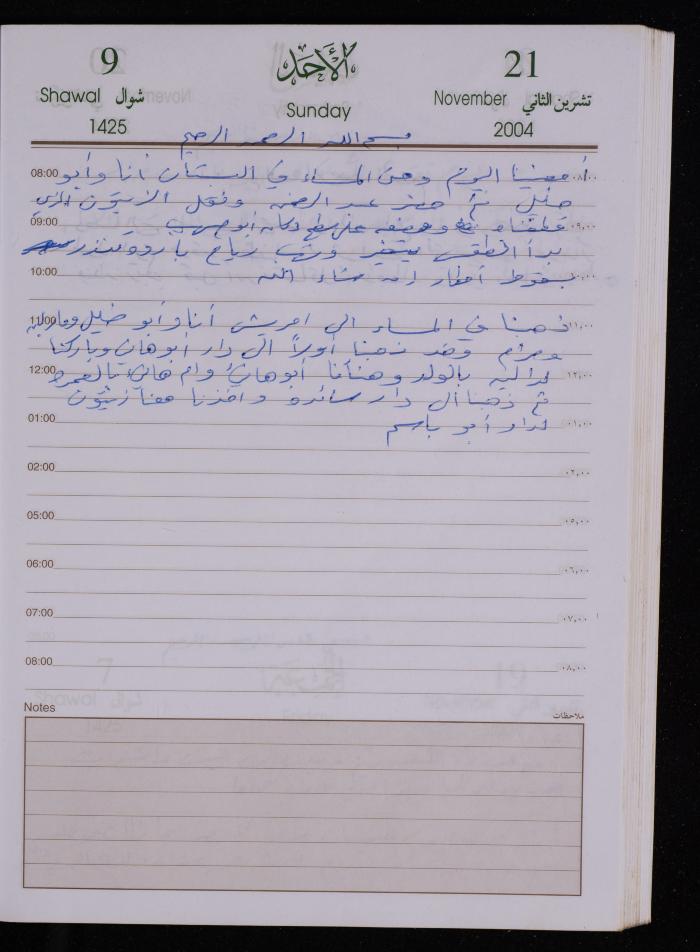 9
الأحد
21
Shawal شوال
November تشرين الثاني
Sunday
1425
2004
بسم الله الرحمن الرحيم
08:00 أمضينا اليوم وحتى المساء في البستان أنا وأبو ٠٨،٠٠
خليل ثم حضر عبد الرحمن ونقل الزيتون الذي
09:00 قطفناه ووضعه على سطح دكانه أبو صهيب ٠٩،٠٠
بدأ الطقس يتغير وهبت رياح باردة تنذر
10:00 بسقوط أمطار إن شاء الله ١٠،٠٠
11:00 ذهبنا في المساء إلى امريش أنا وأبو خليل ١١،٠٠
ومرام وقد ذهبنا أولاً إلى دار أبو هاني وباركنا
12:00 لداليه بالولد وهنأنا أبو هاني وأم هاني بالعمرة ١٢،٠٠
ثم ذهبنا إلى دار سائدة وأخذنا معنا زيتون
01:00 لدار أبو باسم ٠١،٠٠
02:00 ٠٢،٠٠
05:00 ٠٥،٠٠
06:00 ٠٦،٠٠
07:00 ٠٧،٠٠
08:00 ٠٨،٠٠
Notes ملاحظات